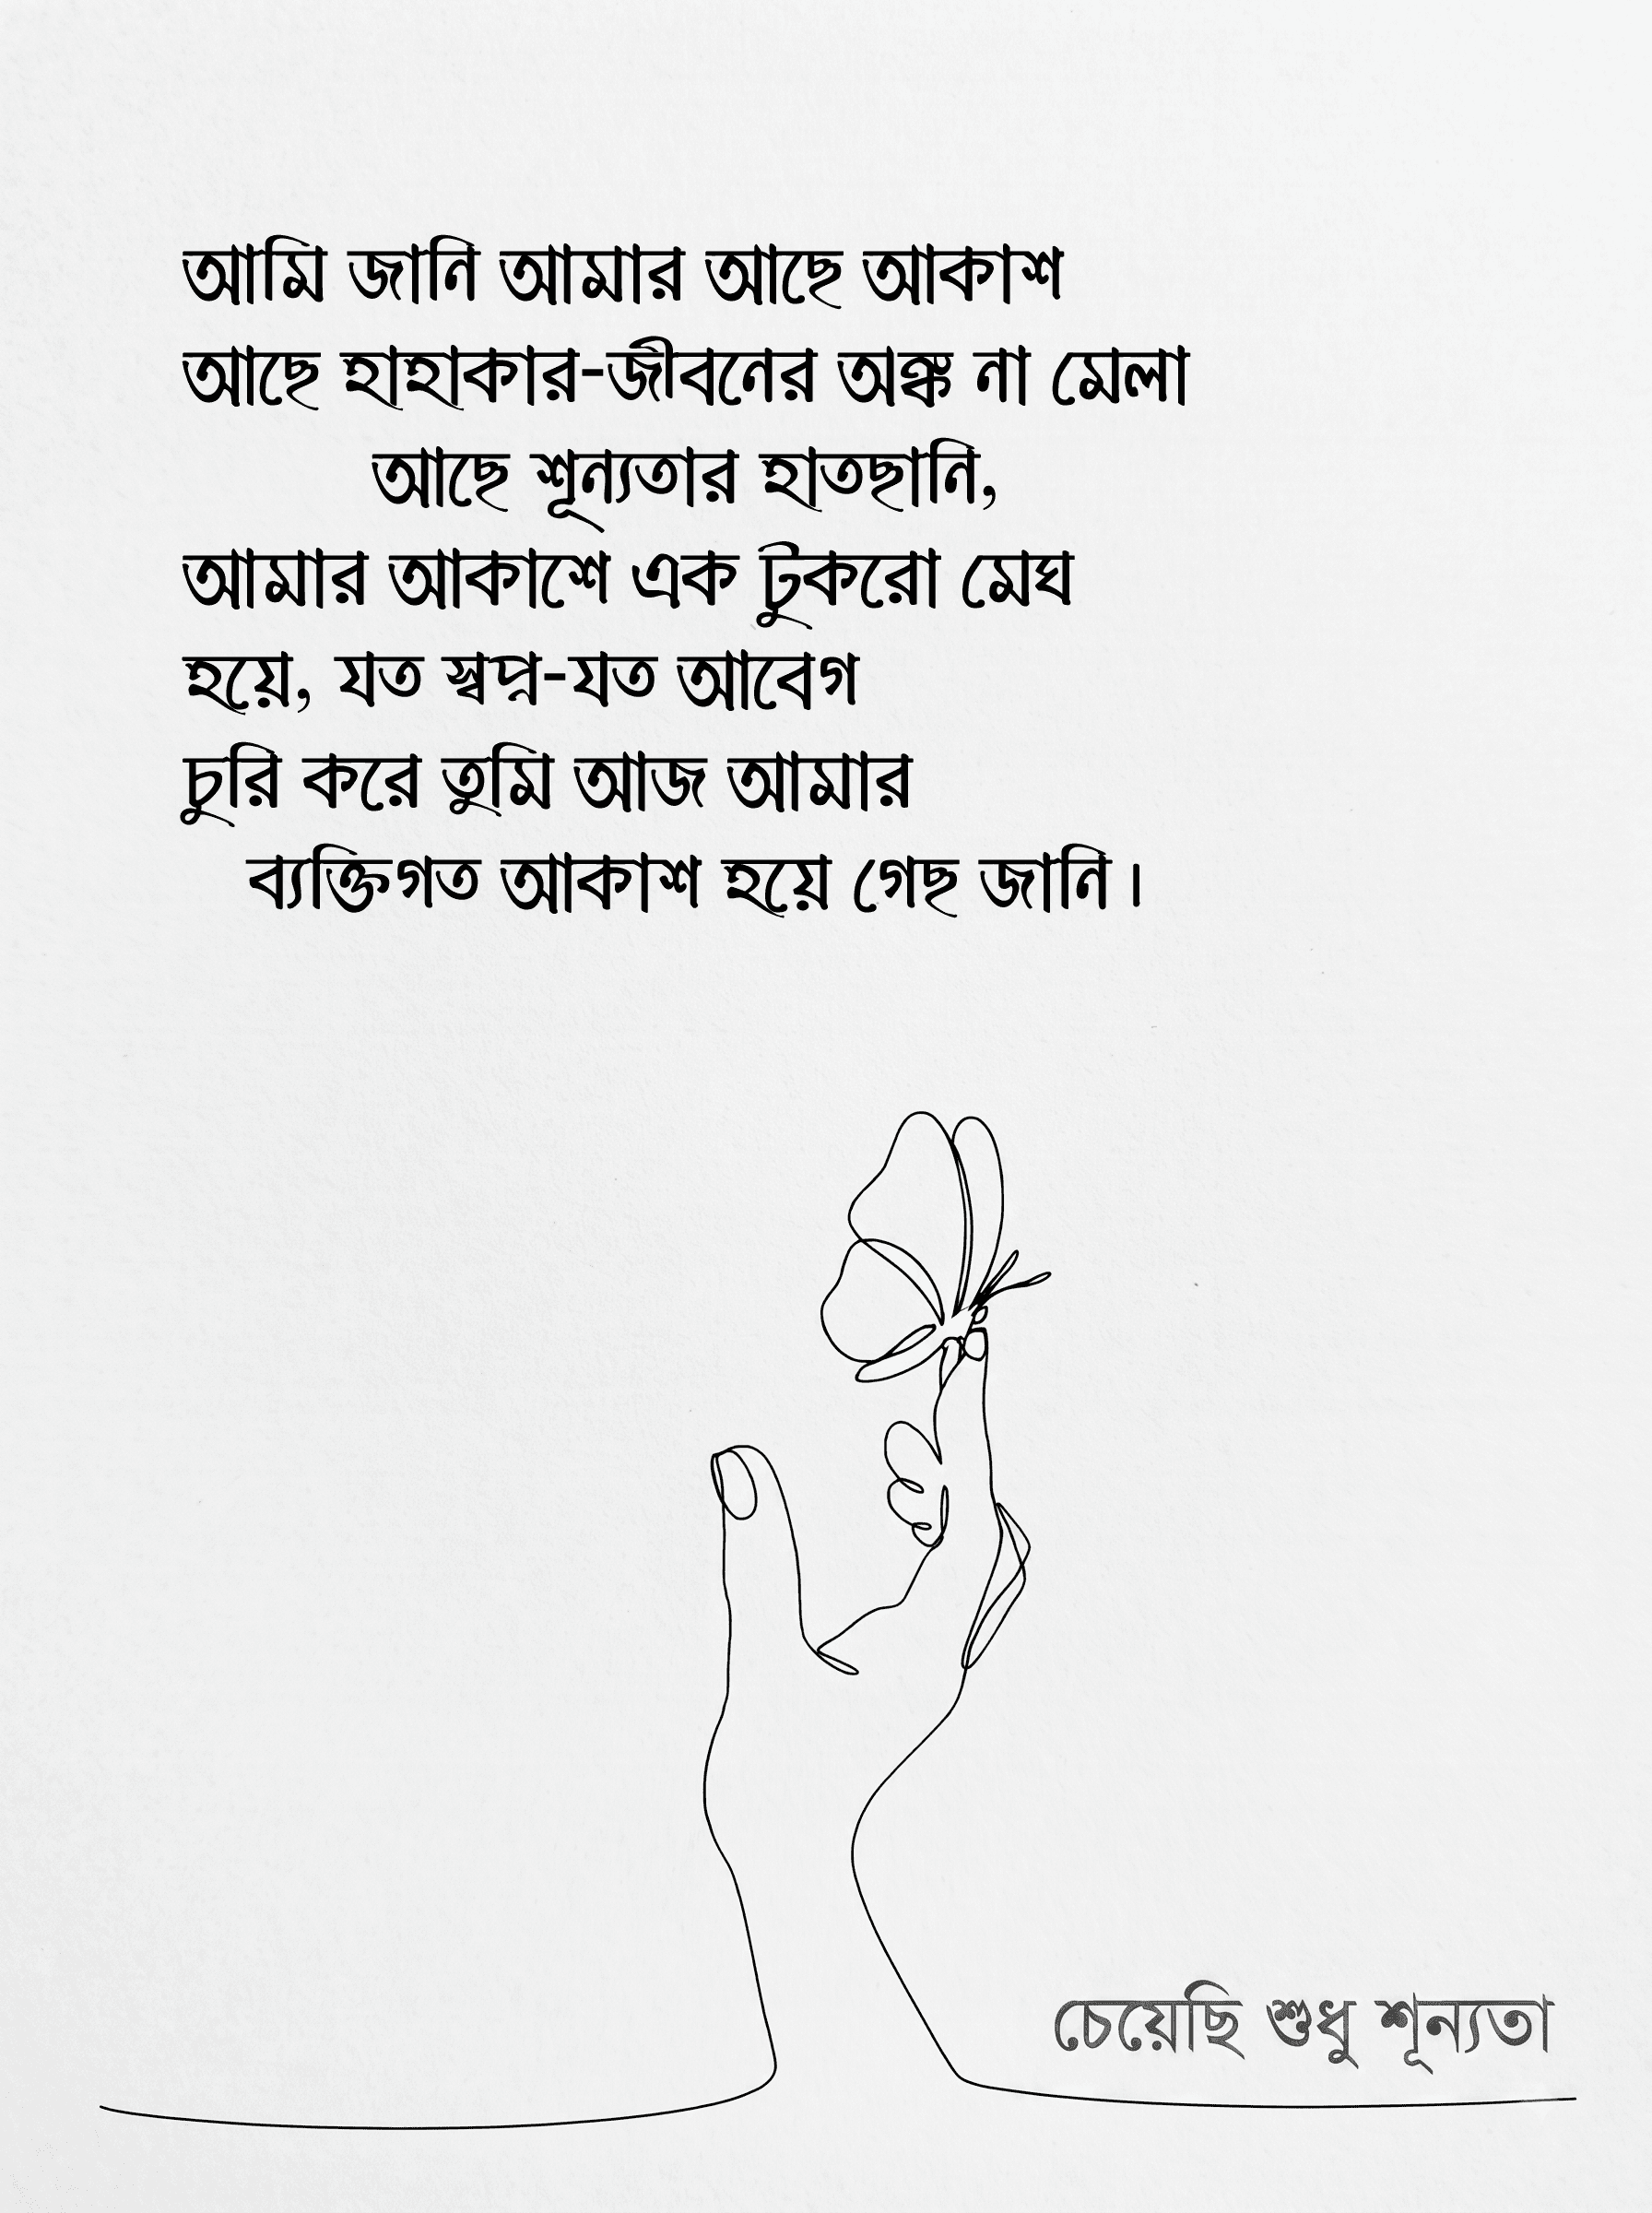 আমি জানি আমার আছে আকাশ
আছে হাহাকার-জীবনের অঙ্ক না মেলা
আছে শূন্যতার হাতছানি,
আমার আকাশে এক টুকরো মেঘ
হয়ে, যত স্বপ্ন-যত আবেগ
চুরি করে তুমি আজ আমার
ব্যক্তিগত আকাশ হয়ে গেছ জানি।
চেয়েছি শুধু শূন্যতা